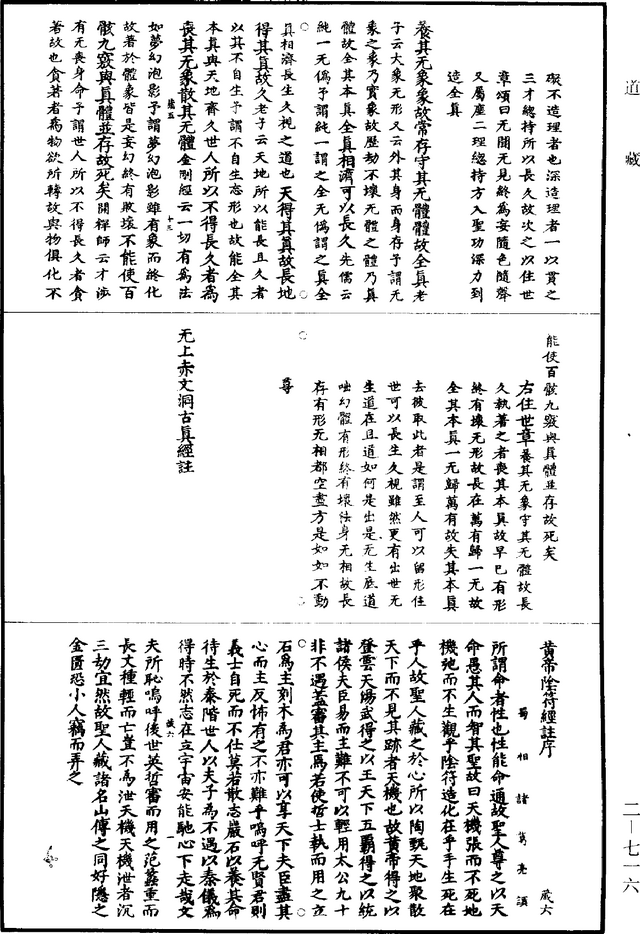 道藏
礙不造理者也深造理者一以貫之
三才總持所以長久故次之以住世
章頌曰无聞无見終為妄隨色隨聲
又屬塵二理總持方入聖功深力到
造全真
養其无象象故常存守其无體體故全真老
子云大象无形又云外其身而身存予謂无
象之象乃實象故歷劫不壞无體之體乃真
體故全其本真全真相濟可以長久先儒云
純一无偽予謂純一謂之全无偽謂之真全
真相濟長生久視之道也天得其真故長地
得其真故久老子云天地所以能長且久者
以其不自生予謂不自生忘形也故能全其
本真與天地齊久世人所以不得長久者為
喪其无象散其无體金剛經云一切有為法
如夢幻泡影予謂夢幻泡影雖有象而終化
故著於體象皆是妄幻終有敗壞不能使百
骸九竅與真體並存故死矣開禪師云才涉
有无喪身命予謂世人所以不得長久者貪
著故也貪著者為物欲所轉故與物俱化不
能使百骸九竅與真體並存故死矣
右住世章養其无象守其无體故長
久執著之者喪其本真故早已有形
終有壞无形故長在萬有歸一无故
全其本真一无歸萬有故失其本真
去彼取此者是謂至人可以留形住
世可以長生久視雖然更有出世无
生道在且道如何是出世无生底道
咄幻體有形終有壞法身无相故長
存有形无相都空盡方是如如不動
尊
无上赤文洞古真經註
黃帝陰符經註序
蜀相諸葛亮撰
所謂命者性也性能命通故聖人尊之以天
命愚其人而智其聖故曰天機張而不死地
機弛而不生觀乎陰符造化在乎手生死在
乎人故聖人藏之於心所以陶甄天地聚散
天下而不見其跡者天機也故黃帝得之以
登雲天湯武得之以王天下五霸得之以統
諸侯夫臣易而主難不可以輕用太公九十
非不遇蓋審其主焉若使哲士執而用之立
石為主刻木為君亦可以享天下夫臣盡其
心而主反怖有之不亦難乎嗚呼无賢君則
義士自死而不仕莫若散志巖石以養其命
待生於泰階世人以夫子為不遇以秦儀為
得時不然志在立宇宙安能馳心下走哉文
夫所恥嗚呼後世英哲審而用之范蠡重而
長文種輕而亡豈不為泄天機天機泄者沉
三劫宜然故聖人藏諸名山傳之同好隱之
金匱恐小人竊而弄之
二一七一六